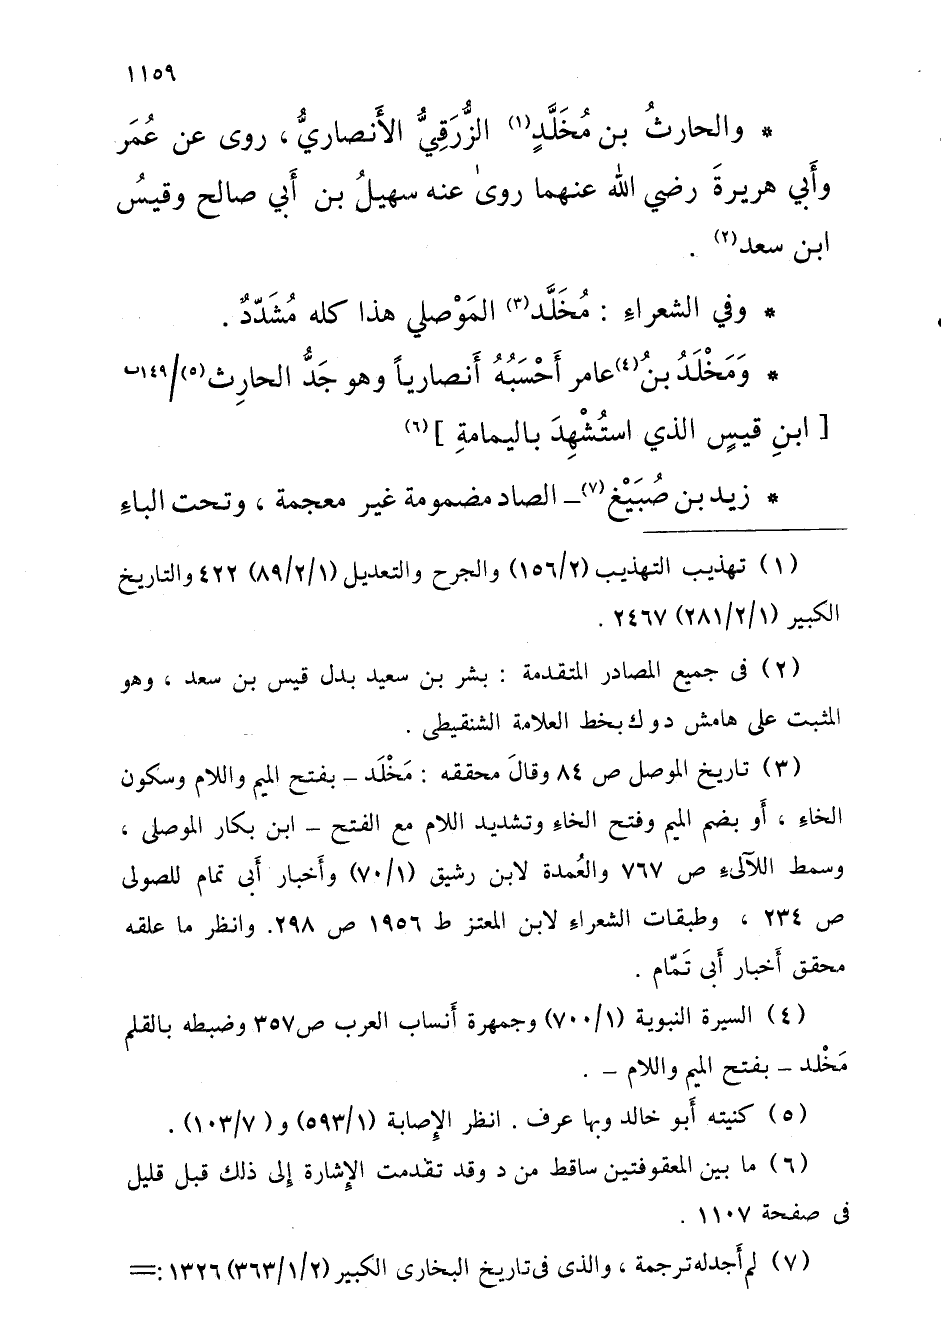 ١١٥٩
* والحارثُ بن مُخَلَّدٍ(١) الزُّرَقِيُّ الأَنصاريُّ ، روى عن عُمَر
وأَبي هريرةَ رضي الله عنهما روىٰ عنه سهيلُ بن أَبي صالح وقيسُ
ابن سعد(٢) .
* وفي الشعراءِ : مُخَلَّد(٣) المَوْصلي هذا كله مُشَدّدٌ .
* وَمَخْلَدُ بنُ(٤) عامر أَحْسَبُهُ أَنصارياً وهو جَدُّ الحارِث(٥)/١٤٩ب
[ ابنِ قيسٍ الذي استُشْهِدَ باليمامةِ ](٦)
* زيد بن صُبَيْغ(٧) ــ الصاد مضمومة غير معجمة ، وتحت الباءِ
(١) تهذيب التهذيب (١٥٦/٢) والجرح والتعديل (٨٩/٢/١) ٤٢٢ والتاريخ
الكبير (٢٨١/٢/١) ٢٤٦٧ .
(٢) فى جميع المصادر المتقدمة : بشر بن سعيد بدل قيس بن سعد ، وهو
المثبت على هامش د و ك بخط العلامة الشنقيطى .
(٣) تاريخ الموصل ص ٨٤ وقالَ محققه : مَخْلَد ــ بفتح الميم واللام وسكون
الخاءِ ، أو بضم الميم وفتح الخاء وتشديد اللام مع الفتح ــ ابن بكار الموصلى ،
وسمط اللآلىء ص ٧٦٧ والعُمدة لابن رشيق (٧٠/١) وأَخبار أَبى تمام للصولى
ص ٢٣٤ ، وطبقات الشعراءِ لابن المعتز ط ١٩٥٦ ص ٢٩٨. وانظر ما علقه
محقق أَخبار أَبى تَمّام .
(٤) السيرة النبوية (٧٠٠/١) وجمهرة أَنساب العرب ص٣٥٧ وضبطه بالقلم
مَخْلد ــ بفتح الميم واللام ــ .
(٥) كنيته أَبو خالد وبها عرف . انظر الإِصابة (٥٩٣/١) و (١٠٣/٧) .
(٦) ما بين المعقوفتين ساقط من د وقد تقدمت الإِشارة إِلى ذلك قبل قليل
فى صفحة ١١٠٧ .
(٧) لم أَجد له ترجمة ، والذى فى تاريخ البخارى الكبير (٣٦٣/١/٢) ١٣٢٦ :==